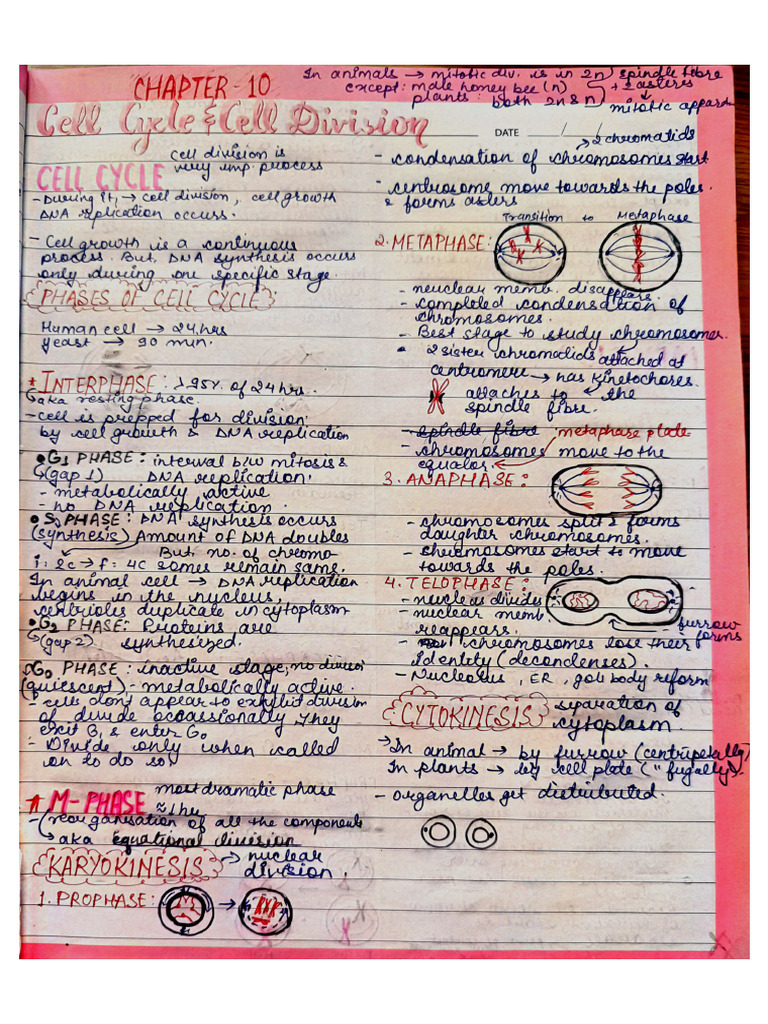 CHAPTER-10
In animals → mitotic div. is in 2n) spindle fibre
except: male honey bee (n) + 2 asters
plants: both 2n & n) ↓
mitotic appara
Cell Cycle & Cell Division
DATE / /
CELL CYCLE
Cell division is
very imp. process
- During it, → cell division, cell growth
DNA replication occurs.
- Cell growth is a continuous
process. But, DNA synthesis occurs
only during one specific stage.
PHASES OF CELL CYCLE:
Human cell → 24 hrs
yeast → 90 min.
* INTERPHASE: >95% of 24 hrs.
↳ aka resting phase.
- cell is prepped for division
by cell growth & DNA replication
• G1 PHASE: interval b/w mitosis &
↳(gap 1) DNA replication.
- metabolically active
- no DNA replication.
• S PHASE: DNA synthesis occurs
(synthesis) Amount of DNA doubles
But, no. of chromo
i: 2c → f: 4C somes remain same.
In animal cell → DNA replication
begins in the nucleus,
centrioles duplicate in cytoplasm
• G2 PHASE: Proteins are
↳(gap 2) synthesized.
G0 PHASE: inactive stage, no division
(quiescent) - metabolically active.
- cells don't appear to exhibit division
or divide occassionally they
exit G1 & enter G0
- Divide only when called
on to do so
* M-PHASE most dramatic phase
≈ 1 hr
- (reorganisation of all the components
↳ aka equational division
KARYOKINESIS → nuclear
division.
1. PROPHASE:
→ 2 chromatids
- condensation of chromosomes start
- centrosome move towards the poles.
& forms asters
Transition to Metaphase
2. METAPHASE:
- neuclear memb. disappears.
- completed condensation of
chromosomes.
- Best stage to study chromosomes.
• 2 sister chromatids attached at
centromere → has kinetochores.
attaches to the
spindle fibre.
- spindle fibre metaphase plate
- chromosomes move to the
equator.
3. ANAPHASE:
- chromosomes split & forms
daughter chromosomes.
- chromosomes start to move
towards the poles.
4. TELOPHASE:
- nucleus divides
- nuclear memb
reappears.
furrow
forms
- chromosomes lose their
identity (decondenses).
- Nucleolus, ER, golgi body reform
CYTOKINESIS separation of
cytoplasm.
→ In animal → by furrow (centripetally)
In plants → by cell plate (" fugally).
- organelles get distributed.